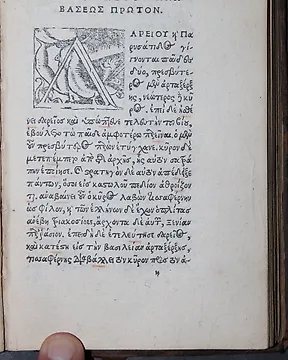 ΒΑΣΕΩΣ ΠΡΩΤΟΝ.
ΔΑΡΕΙΟΥ ϗ Πα
ρυσάτιδος γί
γνονται παῖδες
δύο, πρεσβύτε-
ρος μὲν ἀρταξέρ
ξης, νεώτερος δὲ κῦ
ρος. ἐπεὶ δὲ ἠσθέ
νει δαρεῖος καὶ ὑπώπτευε τελευτὴν τοῦ βίου,
ἐβούλετο τὼ παῖδε ἀμφοτέρω παρεῖναι. ὁ μὲν
οὖν πρεσβύτερος παρὼν ἐτύγχανε. κῦρον δὲ
μεταπέμπεται ἀπὸ τῆς ἀρχῆς, ἧς αὐτὸν σατρά
πην ἐποίησε. ϗ στρατηγὸν δὲ αὐτὸν ἀπέδειξε
πάντων, ὅσοι εἰς καστωλοῦ πεδίον ἀθροίζον
ται. ἀναβαίνει οὖν ὁ κῦρος λαβὼν τισσαφέρνην
ὡς φίλον, ϗ τῶν ἑλλήνων δὲ ἔχων ὁπλίτας
ἀνέβη τριακοσίους, ἄρχοντα δὲ αὐτῶν, ξενίαν
παῤῥάσιον. ἐπεὶ δὲ ἐτελεύτησε δαρεῖος,
καὶ κατέστη εἰς τὴν βασιλείαν ἀρταξέρξης,
τισσαφέρνης διαβάλλει τὸν κῦρον πρὸς τὸν ἀ-